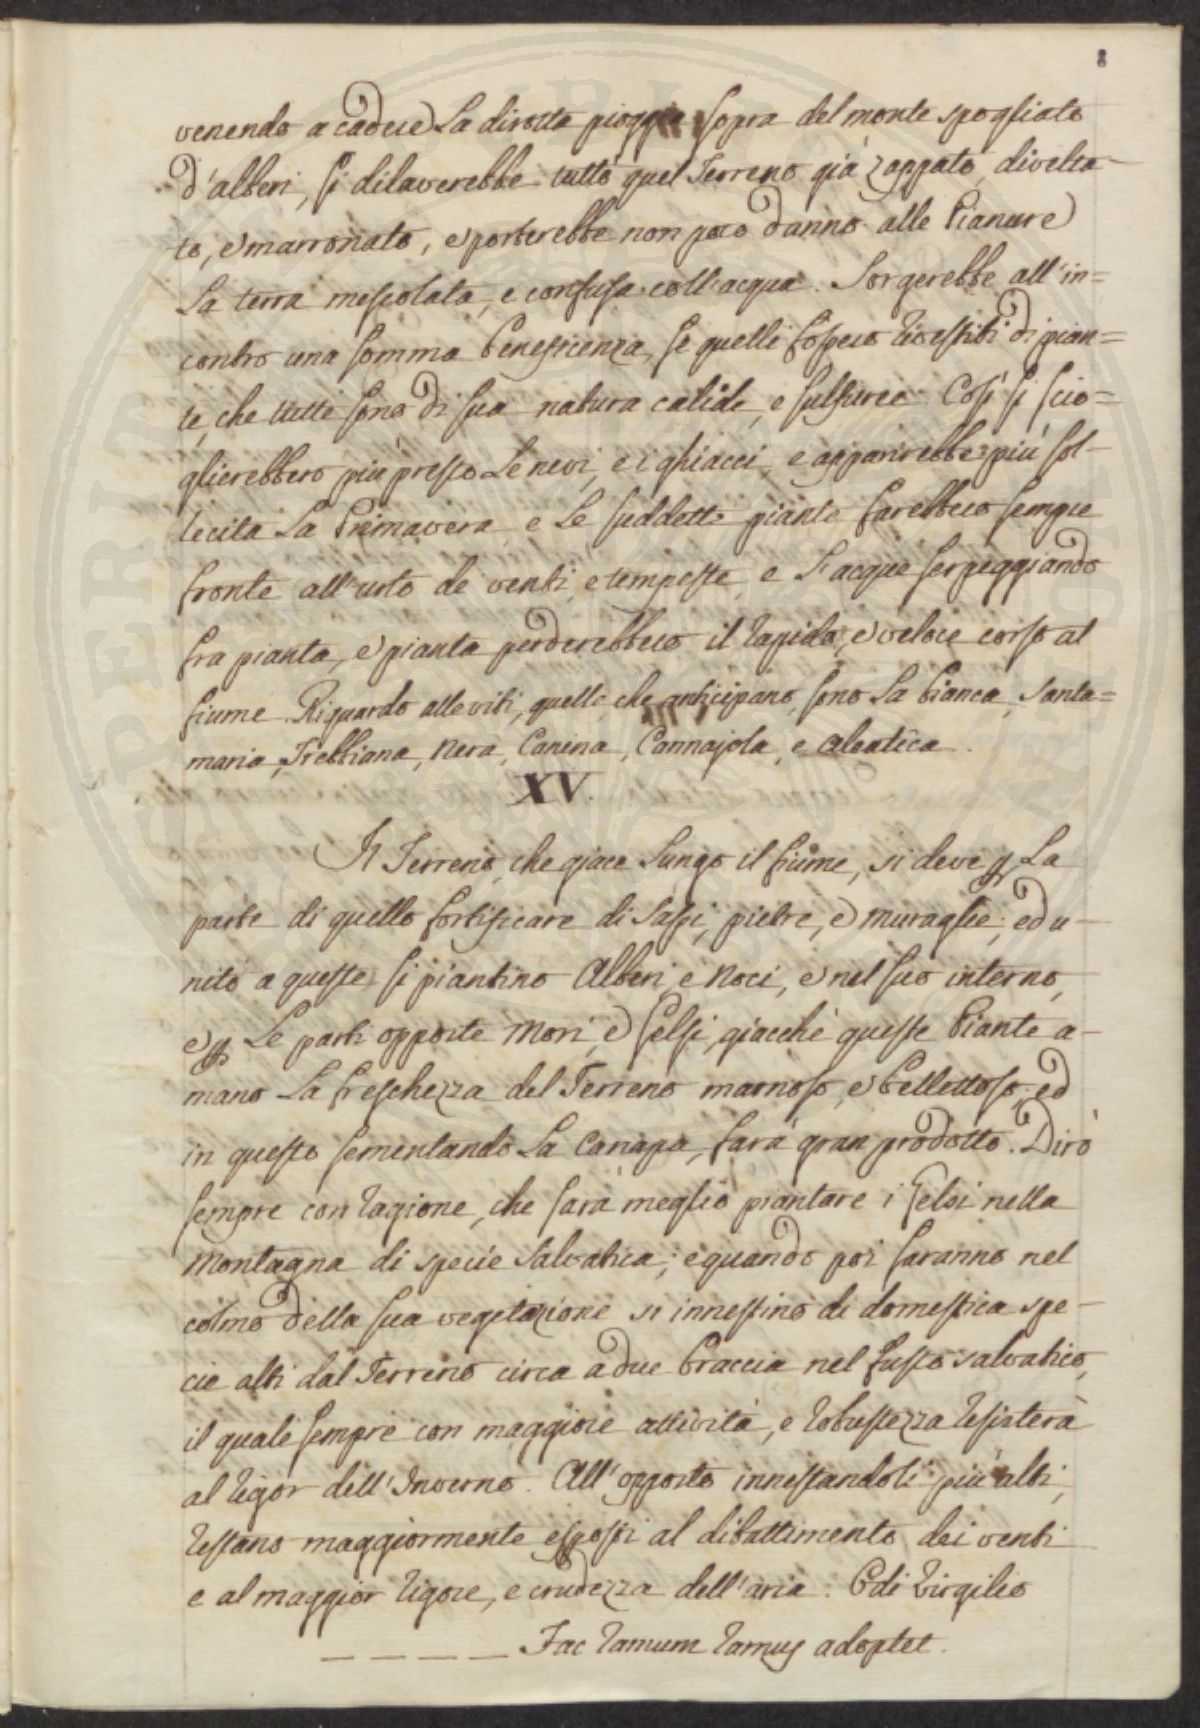 8
venendo a cadere la dirotta pioggia sopra del monte spogliato
d'alberi, si dilaverebbe tutto quel Terreno già zappato, divelta-
to, e marronato, e porterebbe non poco danno alle Pianure
la terra mescolata, e confusa coll'acqua. Sorgerebbe all'in=
contro una somma beneficenza, se quelli fossero rivestiti di pian=
te, che tutte sono di sua natura calide, e sulfuree. Così si scio=
glierebbero più presto le nevi, e i ghiacci, e apparirebbe più sol-
lecita la Primavera, e le suddette piante farebbero sempre
fronte all'urto de venti, e tempeste, e l'acque serpeggiando
fra pianta, e pianta perderebbero il rapido, e veloce corso al
fiume. Riguardo alle viti, quelle che anticipano, sono la bianca, Santa=
maria, Trebbiana, Nera, Canina, Cannajola, e Aleatica.
XV.
Il Terreno, che giace lungo il fiume, si deve p la
parte di quello fortificare di sassi, pietre, e muraglie, ed u-
nito a queste si piantino Alberi, e Noci, e nel suo interno,
e p le parti opposte Mori, e Gelsi, giacchè queste Piante a-
mano la freschezza del Terreno marnoso, e bellettoso, ed
in questo sementando la Canapa, farà gran prodotto. Dirò
sempre con ragione, che sarà meglio piantare i Gelsi nella
Montagna di specie salvatica; e quando poi saranno nel
colmo della sua vegetazione si innestino di domestica spe-
cie alti dal Terreno circa a due braccia nel fusto salvatico,
il quale sempre con maggiore attività, e robustezza resisterà
al rigor dell'Inverno. All'opposto innestandoli più alti,
restano maggiormente esposti al dibattimento dei venti
e al maggior rigore, e crudezza dell'aria. Odi Virgilio
_ _ _ _ _ Fac ramum ramus adoptet.